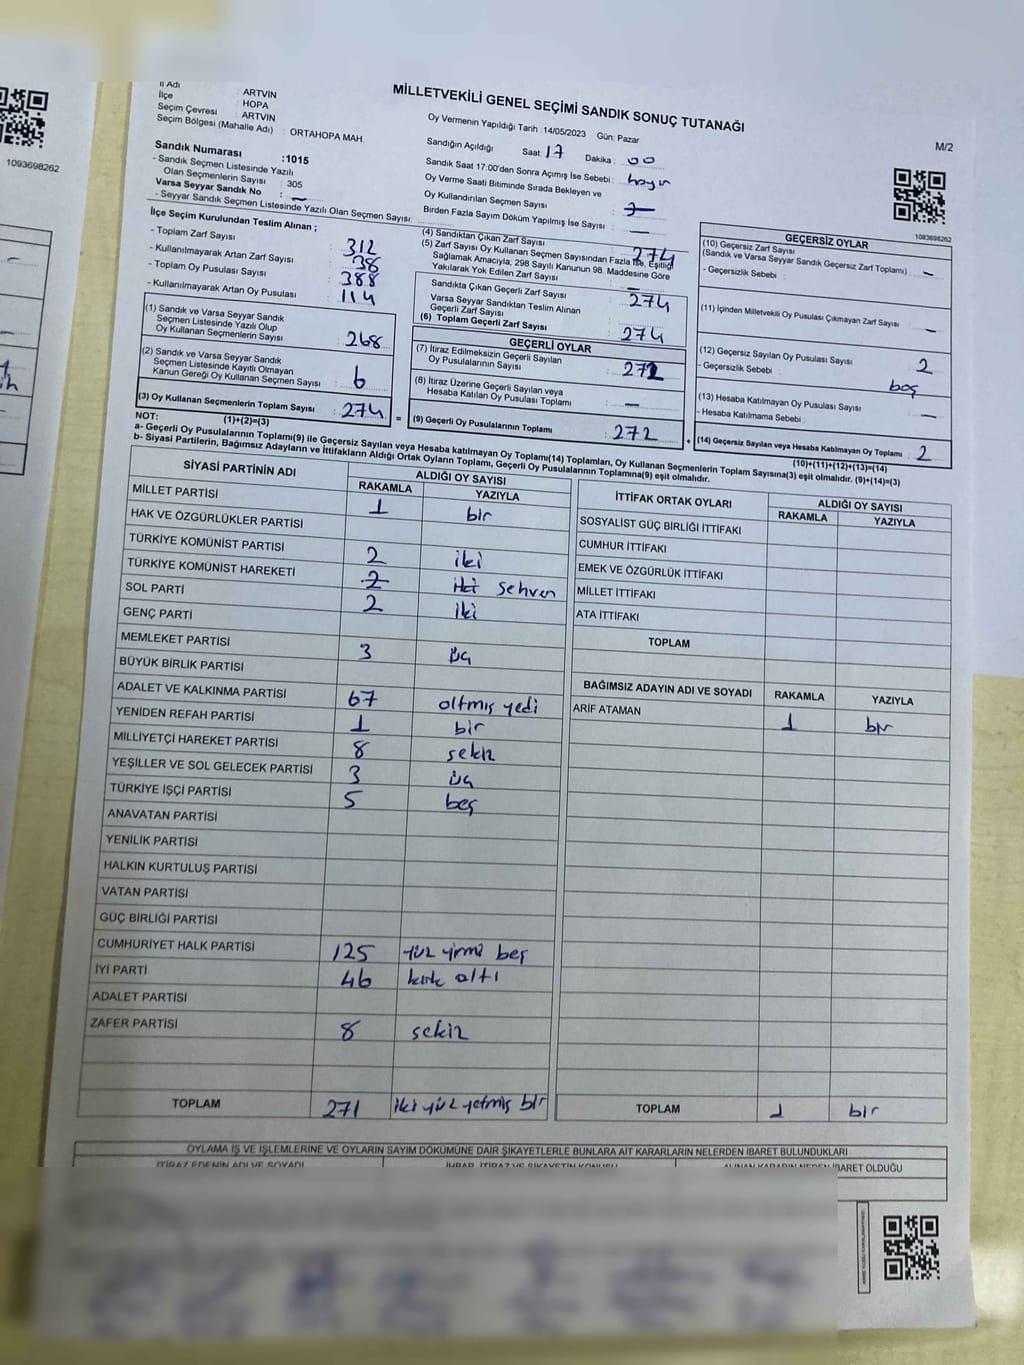 1093698262
İl Adı : ARTVİN
İlçe : HOPA
Seçim Çevresi : ARTVİN
Seçim Bölgesi (Mahalle Adı) : ORTAHOPA MAH.
MİLLETVEKİLİ GENEL SEÇİMİ SANDIK SONUÇ TUTANAĞI
M/2
Oy Vermenin Yapıldığı Tarih :14/05/2023 Gün: Pazar
Sandığın Açıldığı Saat: 17 Dakika : 00
Sandık Saat 17:00'den Sonra Açımış İse Sebebi : hayır
Oy Verme Saati Bitiminde Sırada Bekleyen ve
Oy Kullandırılan Seçmen Sayısı :
Birden Fazla Sayım Döküm Yapılmış İse Sayısı : —
Sandık Numarası :1015
- Sandık Seçmen Listesinde Yazılı
Olan Seçmenlerin Sayısı : 305
Varsa Seyyar Sandık No : —
- Seyyar Sandık Seçmen Listesinde Yazılı Olan Seçmen Sayısı:
1083698262
İlçe Seçim Kurulundan Teslim Alınan ;
- Toplam Zarf Sayısı : 312
- Kullanılmayarak Artan Zarf Sayısı : 38
- Toplam Oy Pusulası Sayısı : 388
- Kullanılmayarak Artan Oy Pusulası : 114
(1) Sandık ve Varsa Seyyar Sandık
Seçmen Listesinde Yazılı Olup
Oy Kullanan Seçmenlerin Sayısı : 268
(2) Sandık ve Varsa Seyyar Sandık
Seçmen Listesinde Kayıtlı Olmayan
Kanun Gereği Oy Kullanan Seçmen Sayısı : 6
(3) Oy Kullanan Seçmenlerin Toplam Sayısı : 274
(1)+(2)=(3)
(4) Sandıktan Çıkan Zarf Sayısı : 274
(5) Zarf Sayısı Oy Kullanan Seçmen Sayısından Fazla İse, Eşitliği
Sağlamak Amacıyla; 298 Sayılı Kanunun 98. Maddesine Göre
Yakılarak Yok Edilen Zarf Sayısı : —
Sandıkta Çıkan Geçerli Zarf Sayısı : 274
Varsa Seyyar Sandıktan Teslim Alınan
Geçerli Zarf Sayısı :
(6) Toplam Geçerli Zarf Sayısı : 274
GEÇERLİ OYLAR
(7) İtiraz Edilmeksizin Geçerli Sayılan
Oy Pusulalarının Sayısı : 272
(8) İtiraz Üzerine Geçerli Sayılan veya
Hesaba Katılan Oy Pusulası Toplamı : —
= (9) Geçerli Oy Pusulalarının Toplamı : 272
GEÇERSİZ OYLAR
(10) Geçersiz Zarf Sayısı
(Sandık ve Varsa Seyyar Sandık Geçersiz Zarf Toplamı) : —
- Geçersizlik Sebebi :
(11) İçinden Milletvekili Oy Pusulası Çıkmayan Zarf Sayısı : —
(12) Geçersiz Sayılan Oy Pusulası Sayısı : 2
- Geçersizlik Sebebi : boş
(13) Hesaba Katılmayan Oy Pusulası Sayısı : —
- Hesaba Katılmama Sebebi :
+ (14) Geçersiz Sayılan veya Hesaba Katılmayan Oy Toplamı : 2
(10)+(11)+(12)+(13)=(14)
NOT:
a- Geçerli Oy Pusulalarının Toplamı(9) ile Geçersiz Sayılan veya Hesaba katılmayan Oy Toplamı(14) Toplamları, Oy Kullanan Seçmenlerin Toplam Sayısına(3) eşit olmalıdır. (9)+(14)=(3)
b- Siyasi Partilerin, Bağımsız Adayların ve İttifakların Aldığı Ortak Oyların Toplamı, Geçerli Oy Pusulalarının Toplamına(9) eşit olmalıdır.
SİYASİ PARTİNİN ADI ALDIĞI OY SAYISI
RAKAMLA YAZIYLA
MİLLET PARTİSİ 1 bir
HAK VE ÖZGÜRLÜKLER PARTİSİ
TÜRKİYE KOMÜNİST PARTİSİ 2 iki
TÜRKİYE KOMÜNİST HAREKETİ 2 iki sehven
SOL PARTİ 2 iki
GENÇ PARTİ
MEMLEKET PARTİSİ 3 üç
BÜYÜK BİRLİK PARTİSİ
ADALET VE KALKINMA PARTİSİ 67 altmış yedi
YENİDEN REFAH PARTİSİ 1 bir
MİLLİYETÇİ HAREKET PARTİSİ 8 sekiz
YEŞİLLER VE SOL GELECEK PARTİSİ 3 üç
TÜRKİYE İŞÇİ PARTİSİ 5 beş
ANAVATAN PARTİSİ
YENİLİK PARTİSİ
HALKIN KURTULUŞ PARTİSİ
VATAN PARTİSİ
GÜÇ BİRLİĞİ PARTİSİ
CUMHURİYET HALK PARTİSİ 125 yüz yirmi beş
İYİ PARTİ 46 kırk altı
ADALET PARTİSİ
ZAFER PARTİSİ 8 sekiz
TOPLAM 271 iki yüz yetmiş bir
İTTİFAK ORTAK OYLARI ALDIĞI OY SAYISI
RAKAMLA YAZIYLA
SOSYALİST GÜÇ BİRLİĞİ İTTİFAKI
CUMHUR İTTİFAKI
EMEK VE ÖZGÜRLÜK İTTİFAKI
MİLLET İTTİFAKI
ATA İTTİFAKI
TOPLAM
BAĞIMSIZ ADAYIN ADI VE SOYADI RAKAMLA YAZIYLA
ARİF ATAMAN 1 bir
TOPLAM 1 bir
OYLAMA İŞ VE İŞLEMLERİNE VE OYLARIN SAYIM DÖKÜMÜNE DAİR ŞİKAYETLERLE BUNLARA AİT KARARLARIN NELERDEN İBARET BULUNDUKLARI
İTİRAZ EDENİN ADI VE SOYADI İHBAR, İTİRAZ VE ŞİKAYETİN KONUSU ALINAN KARARIN NEDEN İBARET OLDUĞU